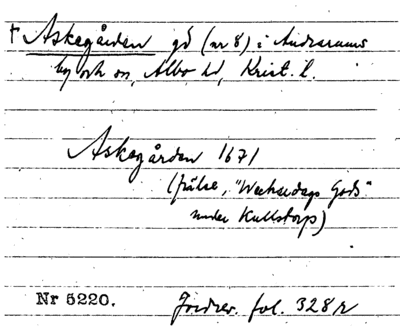 † Askegården gd (nr 8) i Andrarums
by och sn, Albo hd, Krist. l.
Askegården 1671
(frälse, "Weckodags Gods"
under Kullstorp)
Nr 5220. Jordrev. fol. 328 r